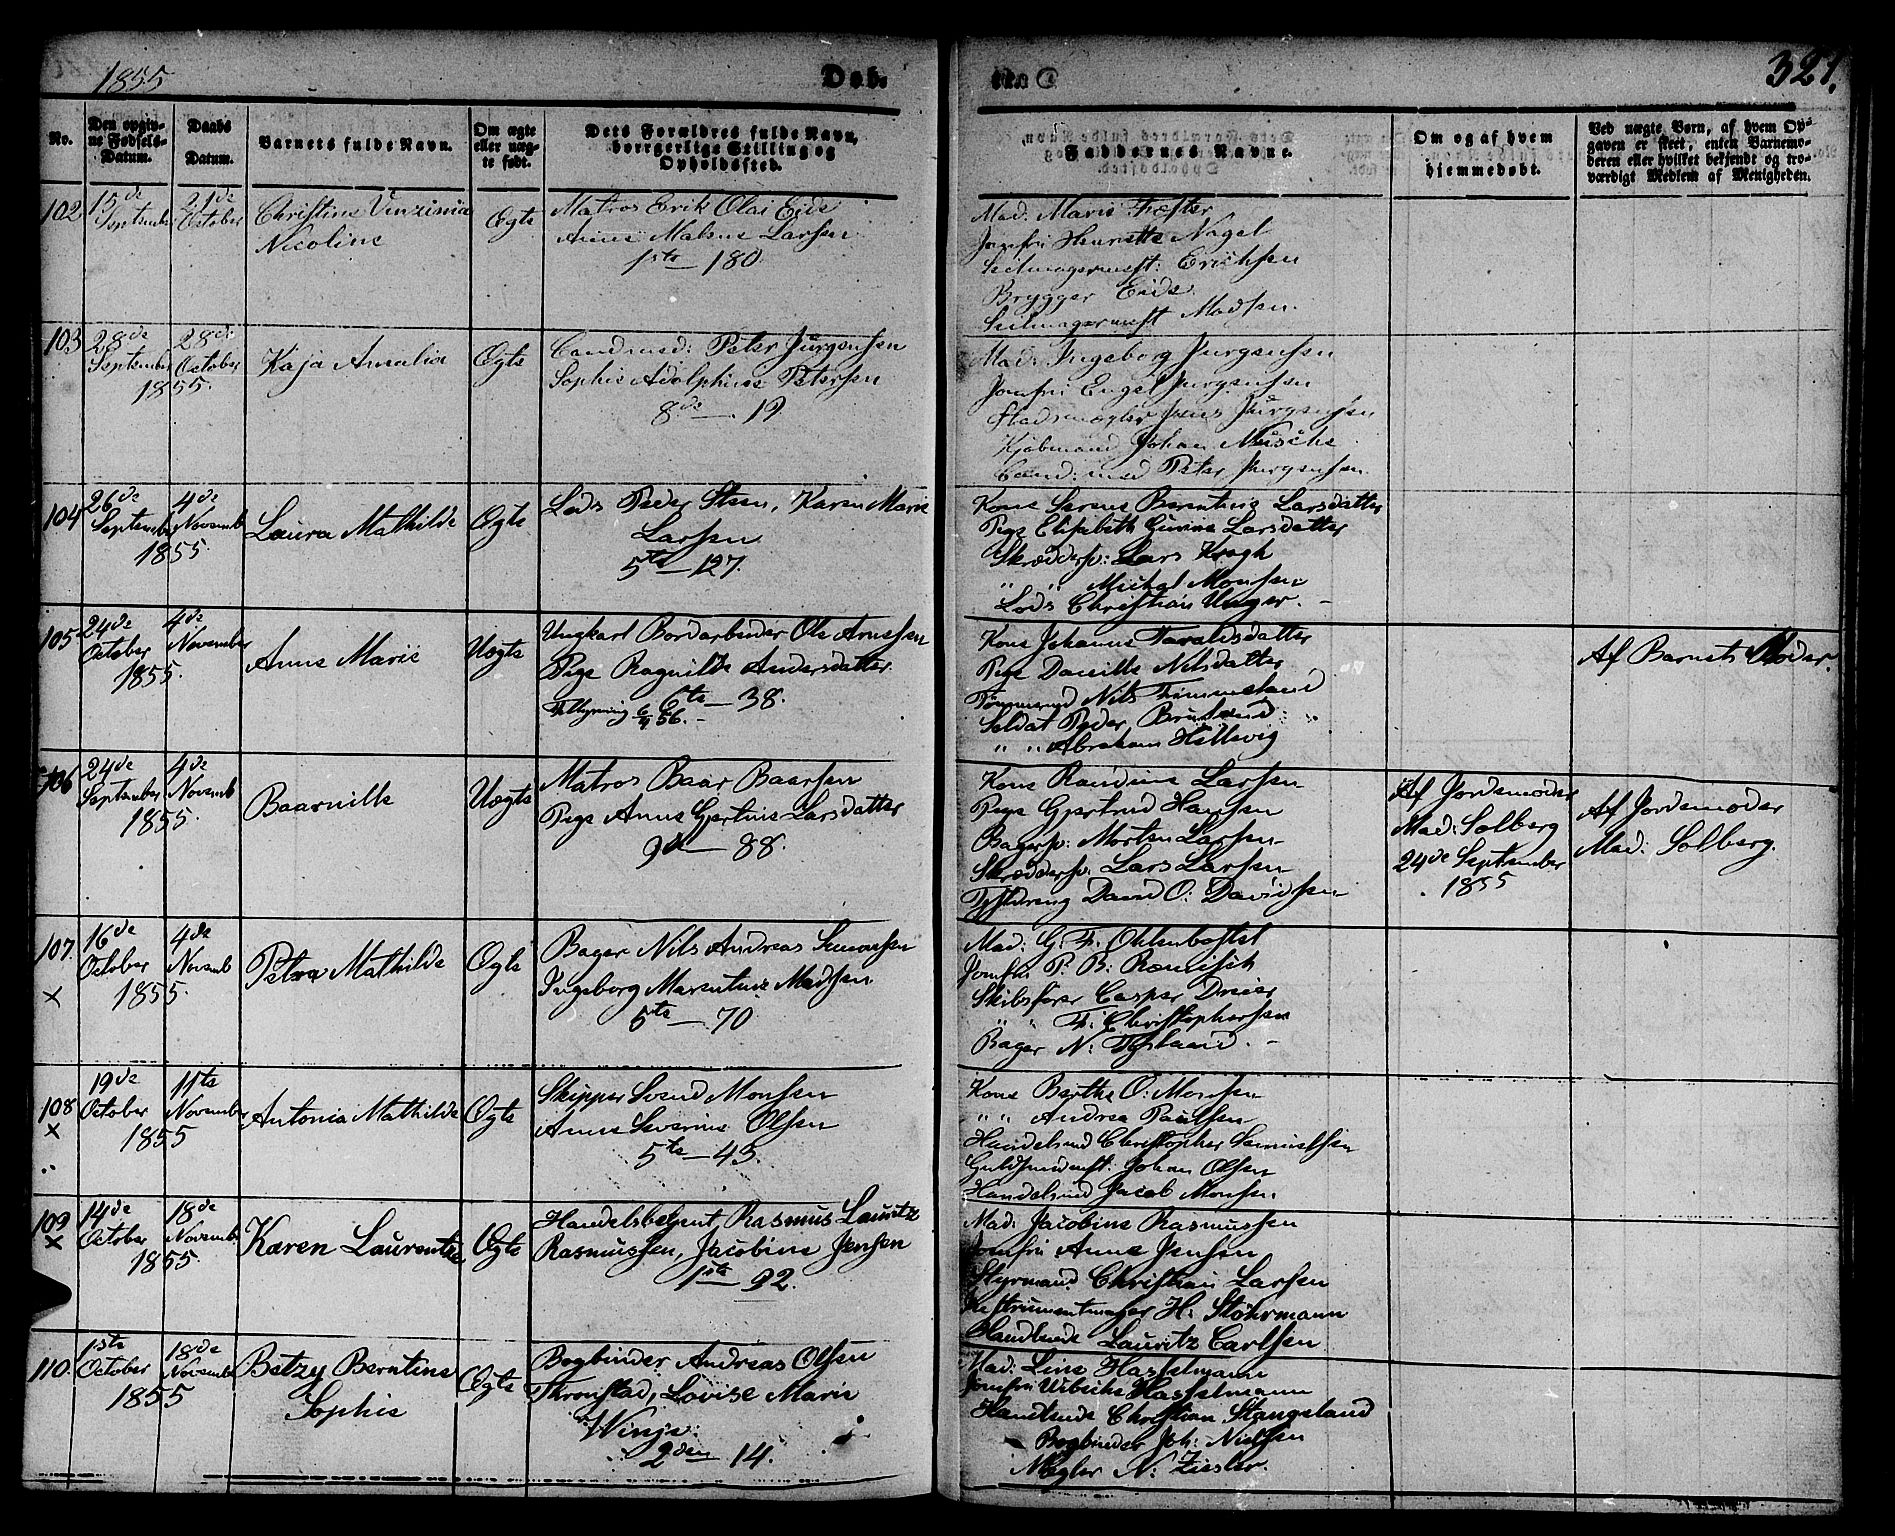 1855
Døb.
321.
No.
Den opgiv-
ne Fødsels-
Datum.
Daabs
Datum.
Barnets fulde Navn.
Om ægte
eller uæg-
te født.
Dets Forældres fulde Navn,
borgerlige Stilling og
Opholdssted.
Faddernes Navne.
Om og af hvem
hjemmedøbt.
Ved uægte Børn, af hvem Op-
gaven er skeet, enten Barnemo-
deren eller hvilket bekjendt og tro-
værdigt Medlem af Menigheden.
102
15de
September
21de
October
Christine
Nicoline
Ægte
Matros Erik Olai Eide
Anne Malene Larsen
1ste – 180.
Mad: Marie Træster
Jomfru Henriette Nagel
Seilmagermest: Erichsen
Brygger Eide
Seilmagermest Madsen.
103
28de
September
28de
October
1855.
Kaja Amalia
Ægte
Cand med: Peter Jürgensen
Sophie Adolphine Petersen
8de – 19
Mad: Ingeborg Jürgensen
Jomfru Engel Jürgensen
Stadsmægler Jens Jürgensen
Kjøbmand Johan
Cand: med Peter Jürgensen
104
26de
September
4de
Novemb
1855.
Laura Mathilde
Ægte
Lods Peder Steen, Karen Marie
Larsen
5te – 127.
Kone Serene Berentine Larsdatter
Pige Elisabeth Gurine Larsdatter
Skrædders: Lars Krogh
" " Michel Monsen
Lods Christian Unger. –
105
24de
October
4de
November
1855.
Anne Marie
Uægte
Ungkarl Bordarbeider Ole Arnesen
Pige Ragnilde Andersdatter
6te – 38.
Kone Johanne Taraldsdatter
Pige Danielle Nilsdatter
Tømmermd Nils Timmeland
Soldat Peder
" " Abraham Hellevig
Af Barnets Moder.
106
24de
September
4de
Novemb
1855.
Baarnille
Uægte
Matros Baar Baarsen
Pige Anne Gjertine Larsdatter
9de – 88.
Kone Randine Larsen
Pige Gjertrud Hansen
Bagersv: Morten Larsen
Skræddersv: Lars Larsen
David O. Davidsen
Af Jordemoder
Mad: Solberg
24de September
1855
Af Jordemoder
Mad: Solberg.
107.
×
16de
October
4de
Novemb
1855.
Petra Mathilde
Ægte
Bager Nils Andreas Simonsen
Ingeborg Marentine Madsen
5te – 70
Mad: G. F. Ohlenbostel
Jomfru P. B. Roemisch
Skibsfører Casper Dreier
" " F: Christophersen
Bager N: Tysland. –
108
×
19de
October
11te
November
1855
Antonia Mathilde
Ægte
Skipper Svend Monsen
Anne Severine Olsen
5te – 45.
Kone Berthe O: Monsen
" " Andrea Paulsen
Handelsmd Christopher Samuelsen
Guldsmedmst: Johan Olsen
Handelsmd Jacob Monsen
109
×
14de
October
18de
Novemb
1855.
Karen Laurentze
Ægte
Handelsbetjent, Rasmus Lauritz
Rasmussen, Jacobine Jensen
1ste – 92.
Mad: Jacobine Rasmussen
Jomfru Anne Jensen
Styrmand Christian Larsen
Instrumentmager H: Støhrmann
Handlende Lauritz Carlsen
110.
1ste
October
18de
Novemb
1855
Betzy Berntine
Sophie
Ægte
Bogbinder Andreas Olsen
Thronstad, Lovise Marie
Winje.
2den – 14.
Mad: Line Hasselmann
Jomfru Ulricke Hasselmann
Handlende Christian Stangeland
Bogbinder Joh: Nielsen
Mægler N: Ziesler.